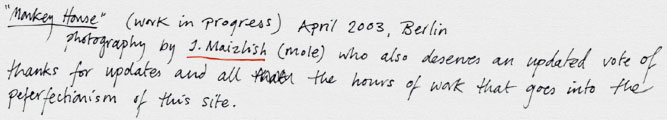 "Monkey House" (work in progress) April 2003, Berlin
photography by J. Maizlish (mole) who also deserves an updated vote of
thanks for updates and all the hours of work that goes into the
peferfectionism of this site.